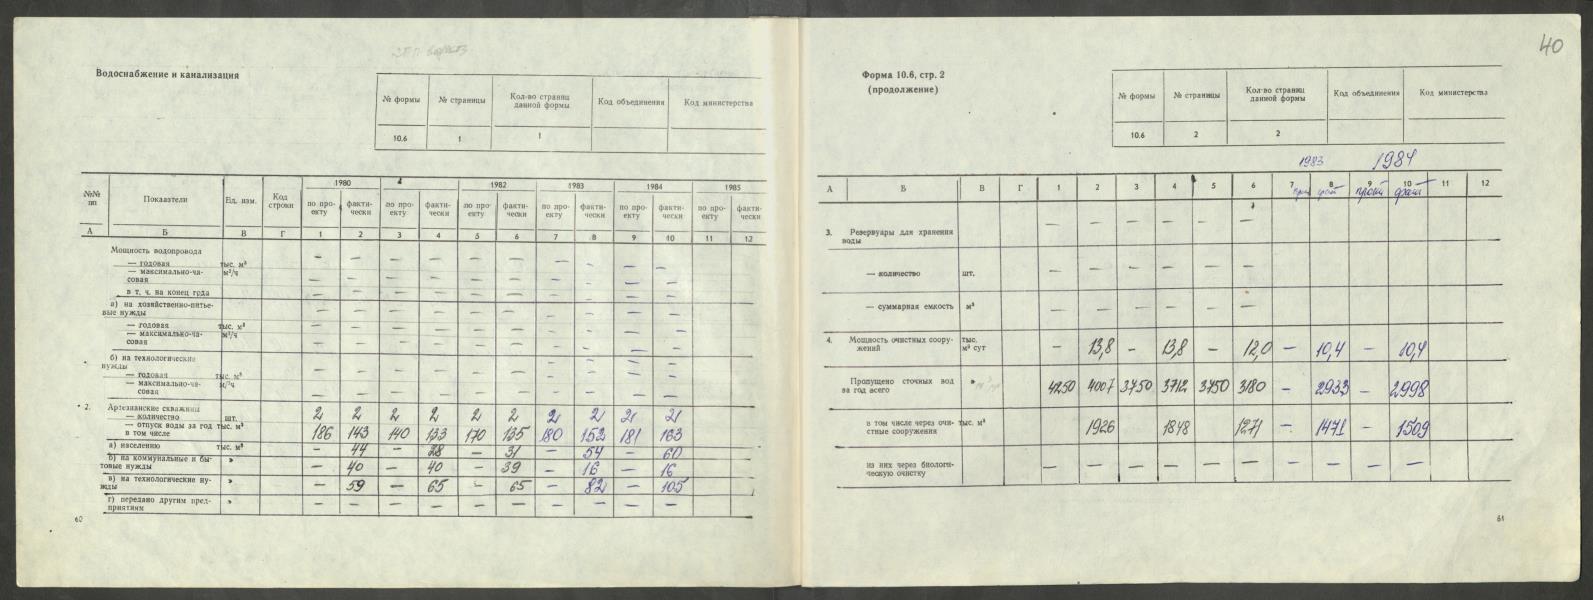 40
Водоснабжение и канализация
№ формы № страницы Кол-во страниц данной формы Код объединения Код министерства
10.6 1 1
№№ пп Показатели Ед. изм. Код строки 1980 1982 1983 1984 1985
по проекту фактически по проекту фактически по проекту фактически по проекту фактически по проекту фактически по проекту фактически
А Б В Г 1 2 3 4 5 6 7 8 9 10 11 12
Мощность водопровода — — — — — — — — — —
— годовая тыс. м³
— максимально-ча- м³/ч — — — — — — — — — —
совая
в т. ч. на конец года — — — — — — — — — —
а) на хозяйственно-питье-
вые нужды — — — — — — — — — —
— годовая тыс. м³
— максимально-ча- м³/ч — — — — — — — — — —
совая — — — — — — — — — —
б) на технологические
нужды
— годовая тыс. м³ — — — — — — — — — —
— максимально-ча- м³/ч
совая — — — — — — — — — —
2. Артезианские скважины
— количество шт. 2 2 2 2 2 2 2 2 2 2
— отпуск воды за год тыс. м³ 186 143 140 133 170 135 180 152 181 163
в том числе
а) населению тыс. м³ — 44 — 28 — 31 — 54 — 60
б) на коммунальные и бы-
товые нужды » — 40 — 40 — 39 — 16 — 16
в) на технологические ну-
жды » — 59 — 65 — 65 — 82 — 105
г) передано другим пред-
приятиям » — — — — — — — — — —
60
Форма 10.6, стр. 2
(продолжение)
№ формы № страницы Кол-во страниц данной формы Код объединения Код министерства
10.6 2 2
1983 1984
А Б В Г 1 2 3 4 5 6 7 8 9 10 11 12
3. Резервуары для хранения
воды — — — — — —
— количество шт. — — — — — —
— суммарная емкость м³ — — — — — —
4. Мощность очистных соору-
жений тыс. м³ сут — 13,8 — 13,8 — 12,0 — 10,4 — 10,4
Пропущено сточных вод
за год всего » 4250 4007 3750 3712 3750 3180 — 2933 — 2998
в том числе через очи-
стные сооружения тыс. м³ 1926 1848 1271 — 1471 — 1509
из них через биологи-
ческую очистку — — — — — — — — — —
61